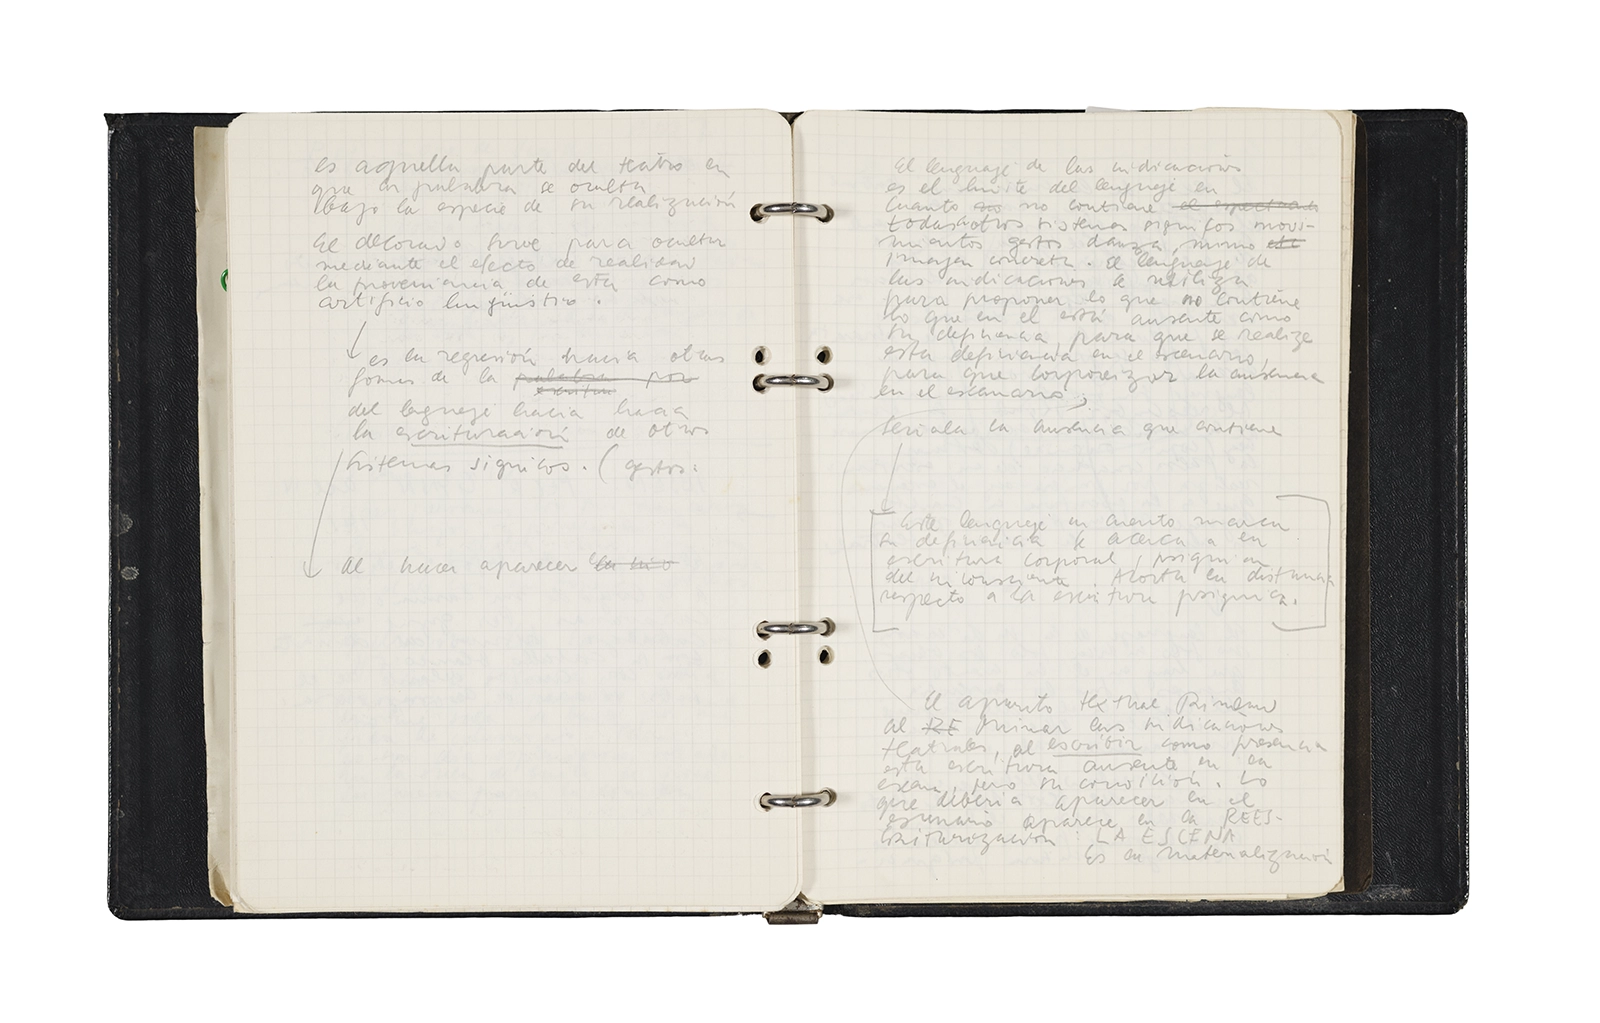 es aquella parte del teatro en
que la palabra se oculta
bajo la especie de su realización
El decorado sirve para ocultar
mediante el efecto de realidad
la proveniencia de esta como
artificio lingüístico.
es la regresión hacia otras
formas de la palabra por
escritura
del lenguaje hacia hacia
la escrituración de otros
sistemas sígnicos. (gestos.
al hacer aparecer
El lenguaje de las indicaciones
es el límite del lenguaje en
cuanto no no contiene el espectáculo
todas otros sistemas sígnicos movi-
mientos gestos danza, mimo etc
imagen concreta. El lenguaje de
las indicaciones se utiliza
para proponer lo que no contiene
lo que en el está ausente como
su deficiencia, para que se realize
esta deficiencia en el escenario,
para que corporeizar la ausencia
en el escenario;
señala la ausencia que contiene
Este lenguaje en cuanto marca
su deficiencia se acerca a la
escritura corporal,
del inconsciente. Acorta la distancia
respecto a la escritura
El aparato textual
al RE las indicaciones
teatrales, al escribir como presencia
esta escritura ausente en la
escena, pero su condición. Lo
que debería aparecer en el
escenario aparece en la REES-
criturización: LA ESCENA
Es la materialización